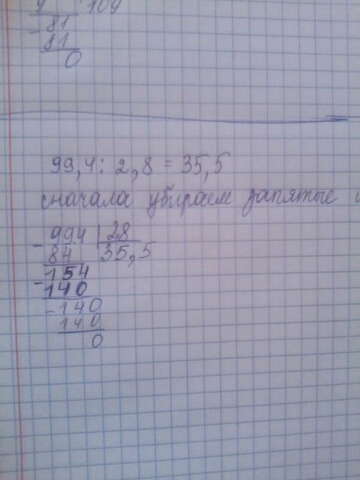 109
- 81
81
0
99,4 : 2,8 = 35,5
сначала убираем запятые
- 994 28
84 35,5
- 154
140
- 140
140
0